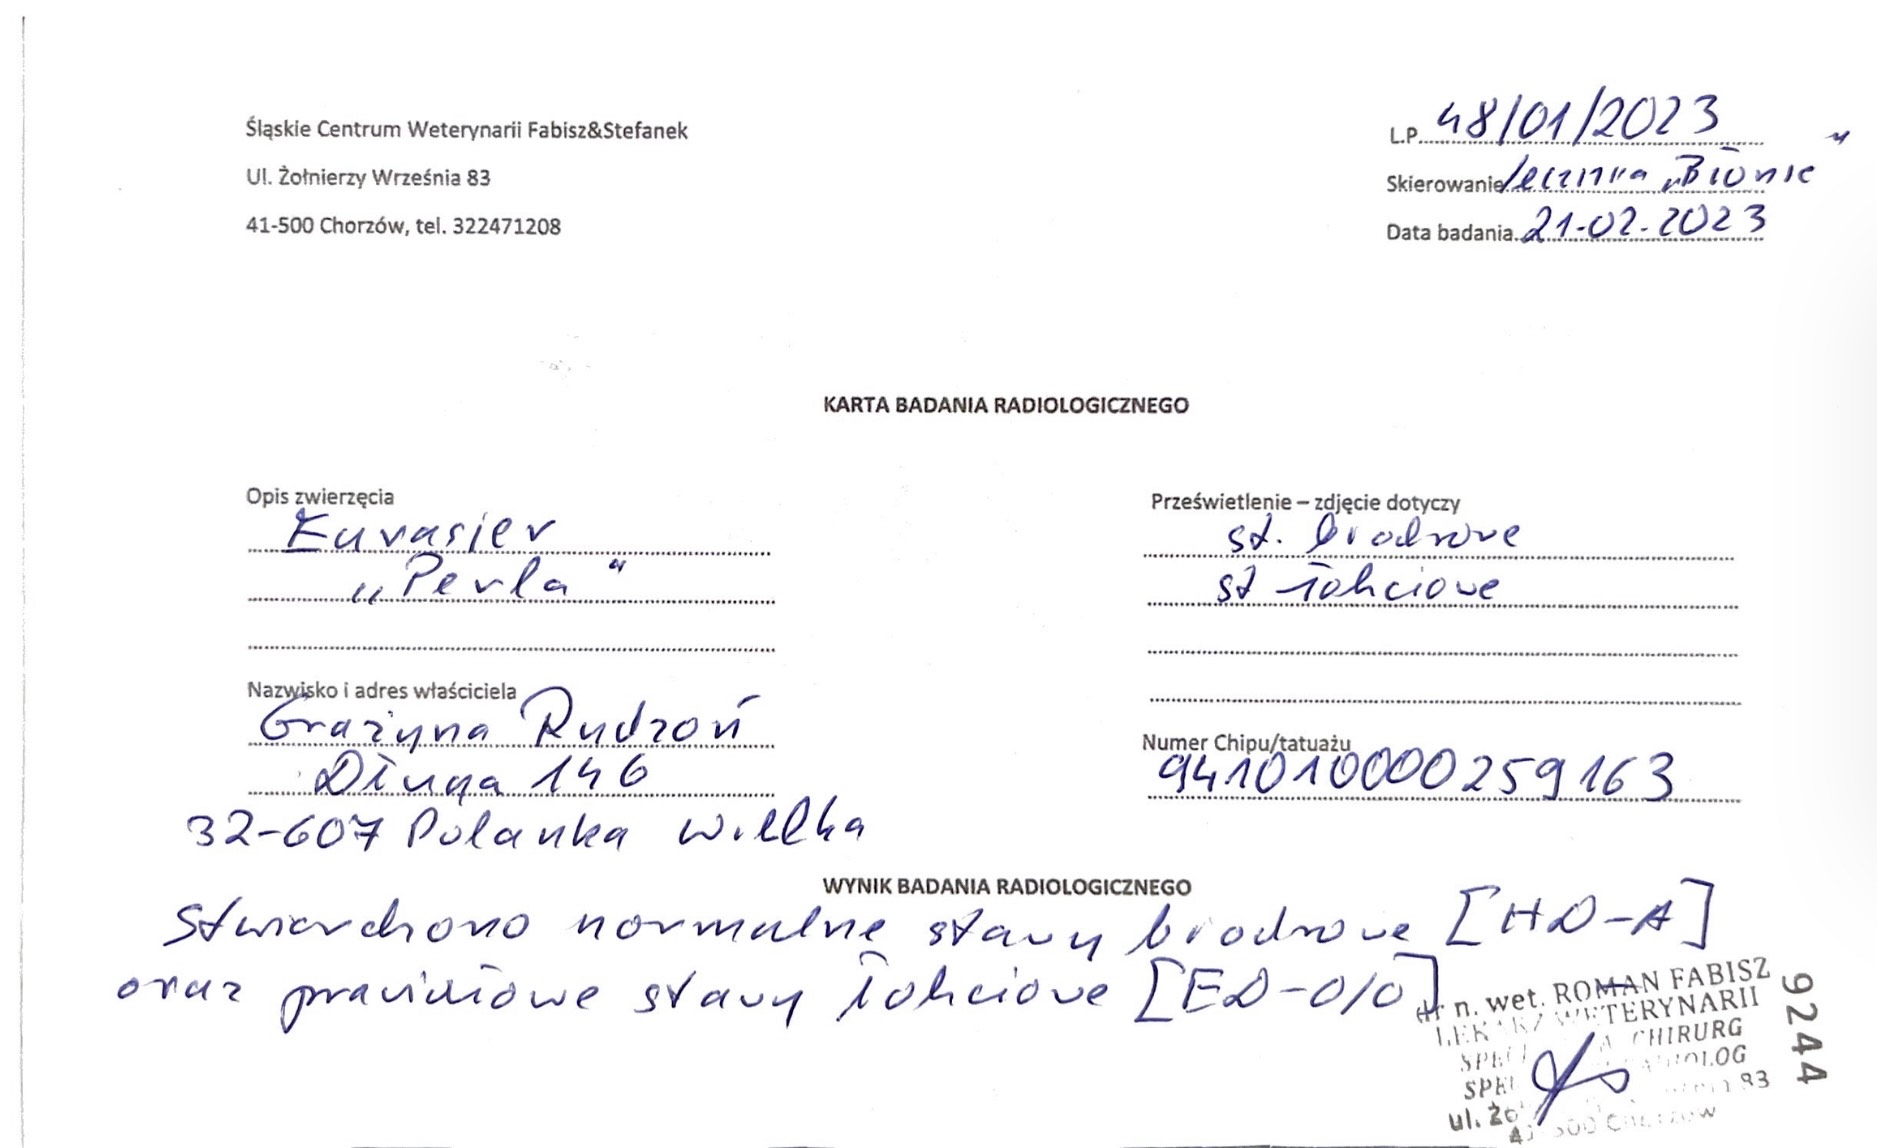 Śląskie Centrum Weterynarii Fabisz&Stefanek
Ul. Żołnierzy Września 83
41-500 Chorzów, tel. 322471208
L.P. 48/01/2023
Skierowanie lecznica „Błonie"
Data badania 21-02-2023
KARTA BADANIA RADIOLOGICZNEGO
Opis zwierzęcia
Eurasier
„Perla"
Nazwisko i adres właściciela
Grażyna Rudzoń
Długa 146
32-607 Polanka Wielka
Prześwietlenie – zdjęcie dotyczy
st. biodrowe
st łokciowe
Numer Chipu/tatuażu
941010000259163
WYNIK BADANIA RADIOLOGICZNEGO
Stwierdzono normalne stawy biodrowe [HD-A]
oraz prawidłowe stawy łokciowe [ED-0/0]
dr n. wet. ROMAN FABISZ
LEKARZ WETERYNARII
CHIRURG
ul. 83
9244